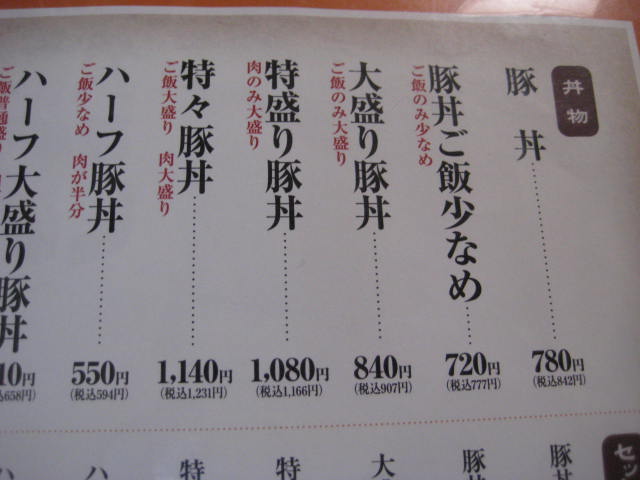 丼物
豚丼
780円
(税込842円)
豚丼ご飯少なめ
ご飯のみ少なめ
720円
(税込777円)
大盛り豚丼
ご飯のみ大盛り
840円
(税込907円)
特盛り豚丼
肉のみ大盛り
1,080円
(税込1,166円)
特々豚丼
ご飯大盛り 肉大盛り
1,140円
(税込1,231円)
ハーフ豚丼
ご飯少なめ 肉が半分
550円
(税込594円)
ハーフ大盛り豚丼
ご飯普通盛り
10円
込658円)
セッ
豚丼
豚丼
大
特
特
ハ
ハ